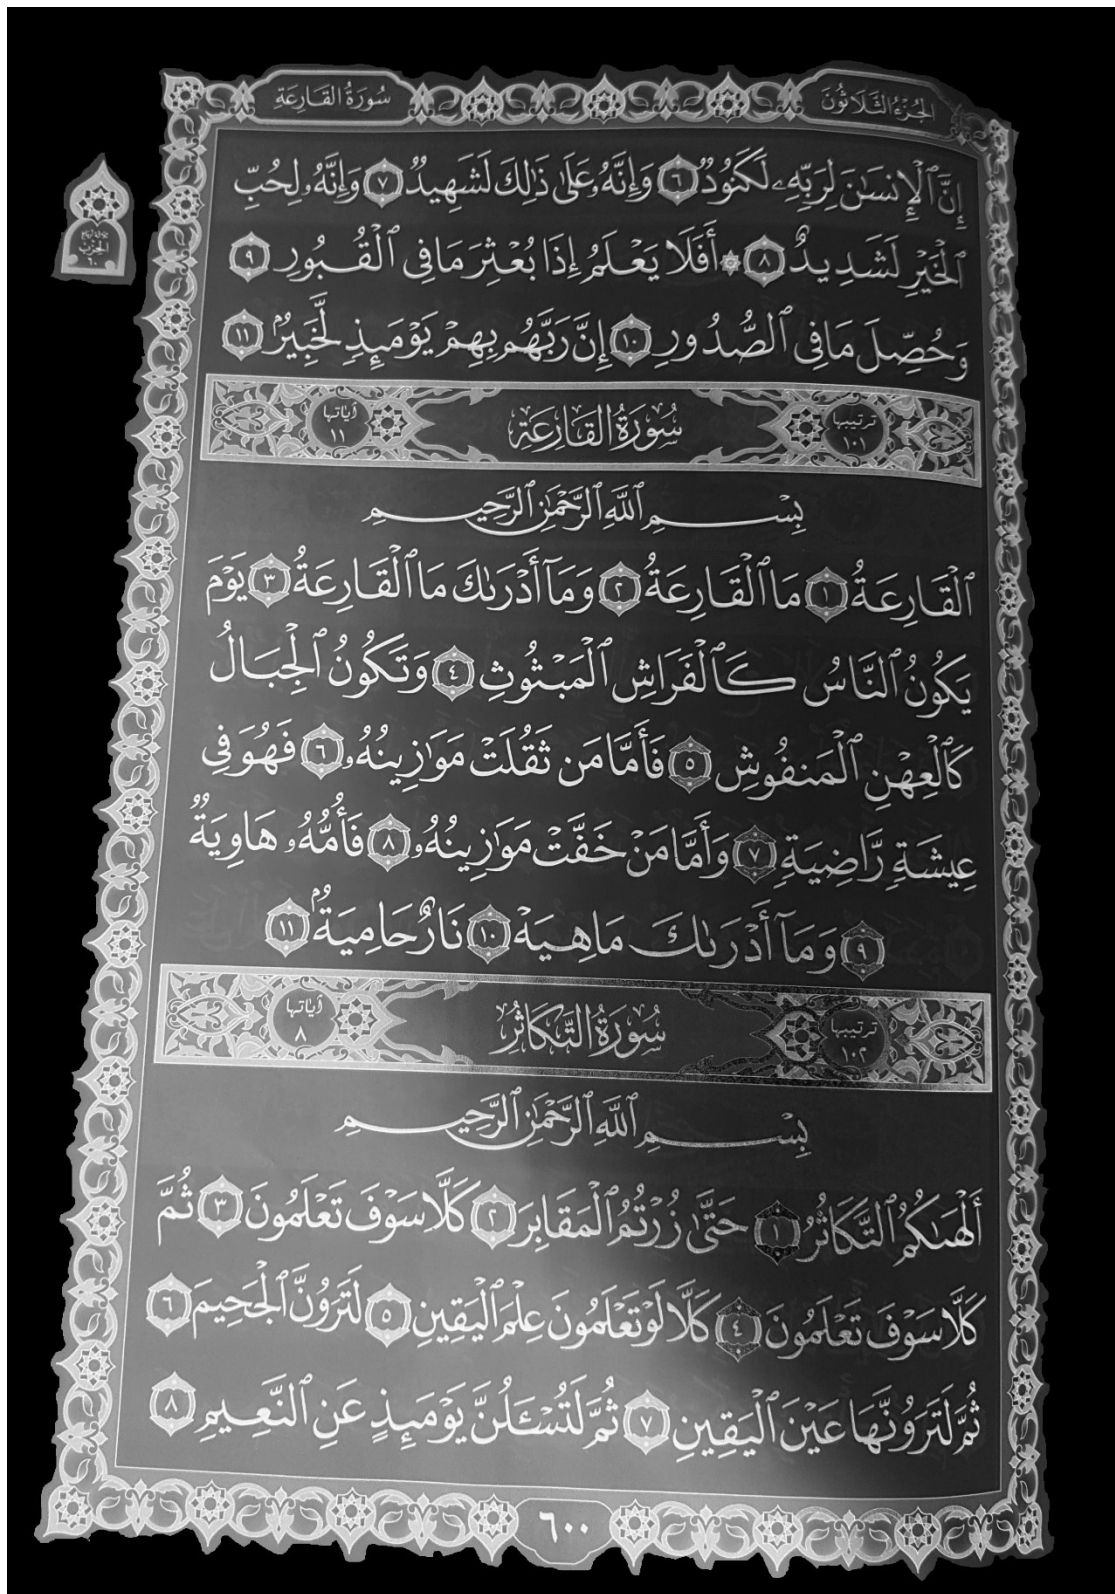 الجُزْءُ الثَّلَاثُونَ
سُورَةُ القَارِعَةِ
إِنَّ ٱلْإِنسَٰنَ لِرَبِّهِۦ لَكَنُودٌ ٦ وَإِنَّهُۥ عَلَىٰ ذَٰلِكَ لَشَهِيدٌ ٧ وَإِنَّهُۥ لِحُبِّ
ٱلْخَيْرِ لَشَدِيدٌ ٨ ۞ أَفَلَا يَعْلَمُ إِذَا بُعْثِرَ مَا فِى ٱلْقُبُورِ ٩
وَحُصِّلَ مَا فِى ٱلصُّدُورِ ١٠ إِنَّ رَبَّهُم بِهِمْ يَوْمَئِذٍ لَّخَبِيرٌۢ ١١
ترتيبها ١٠١
سُورَةُ القَارِعَةِ
آياتها ١١
بِسْمِ ٱللَّهِ ٱلرَّحْمَٰنِ ٱلرَّحِيمِ
ٱلْقَارِعَةُ ١ مَا ٱلْقَارِعَةُ ٢ وَمَآ أَدْرَىٰكَ مَا ٱلْقَارِعَةُ ٣ يَوْمَ
يَكُونُ ٱلنَّاسُ كَٱلْفَرَاشِ ٱلْمَبْثُوثِ ٤ وَتَكُونُ ٱلْجِبَالُ
كَٱلْعِهْنِ ٱلْمَنفُوشِ ٥ فَأَمَّا مَن ثَقُلَتْ مَوَٰزِينُهُۥ ٦ فَهُوَ فِى
عِيشَةٍ رَّاضِيَةٍ ٧ وَأَمَّا مَنْ خَفَّتْ مَوَٰزِينُهُۥ ٨ فَأُمُّهُۥ هَاوِيَةٌ
٩ وَمَآ أَدْرَىٰكَ مَا هِيَهْ ١٠ نَارٌ حَامِيَةٌۢ ١١
ترتيبها ١٠٢
سُورَةُ التَّكَاثُرِ
آياتها ٨
بِسْمِ ٱللَّهِ ٱلرَّحْمَٰنِ ٱلرَّحِيمِ
أَلْهَىٰكُمُ ٱلتَّكَاثُرُ ١ حَتَّىٰ زُرْتُمُ ٱلْمَقَابِرَ ٢ كَلَّا سَوْفَ تَعْلَمُونَ ٣ ثُمَّ
كَلَّا سَوْفَ تَعْلَمُونَ ٤ كَلَّا لَوْ تَعْلَمُونَ عِلْمَ ٱلْيَقِينِ ٥ لَتَرَوُنَّ ٱلْجَحِيمَ ٦
ثُمَّ لَتَرَوُنَّهَا عَيْنَ ٱلْيَقِينِ ٧ ثُمَّ لَتُسْـَٔلُنَّ يَوْمَئِذٍ عَنِ ٱلنَّعِيمِ ٨
٦٠٠
الحزب
٦٠